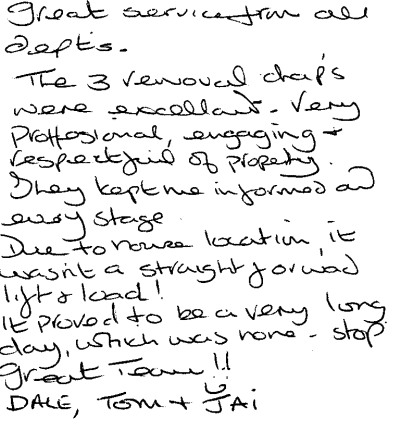 Great service from all
Depts.
The 3 removal chaps
were excellant. Very
Proffesional, engaging +
respectful of property.
They kept me informed on
every stage
Due to house location, it
wasn't a straight forward
lift & load!
It proved to be a very long
day, which was none-stop
Great Team!!
DALE, TOM + JAi